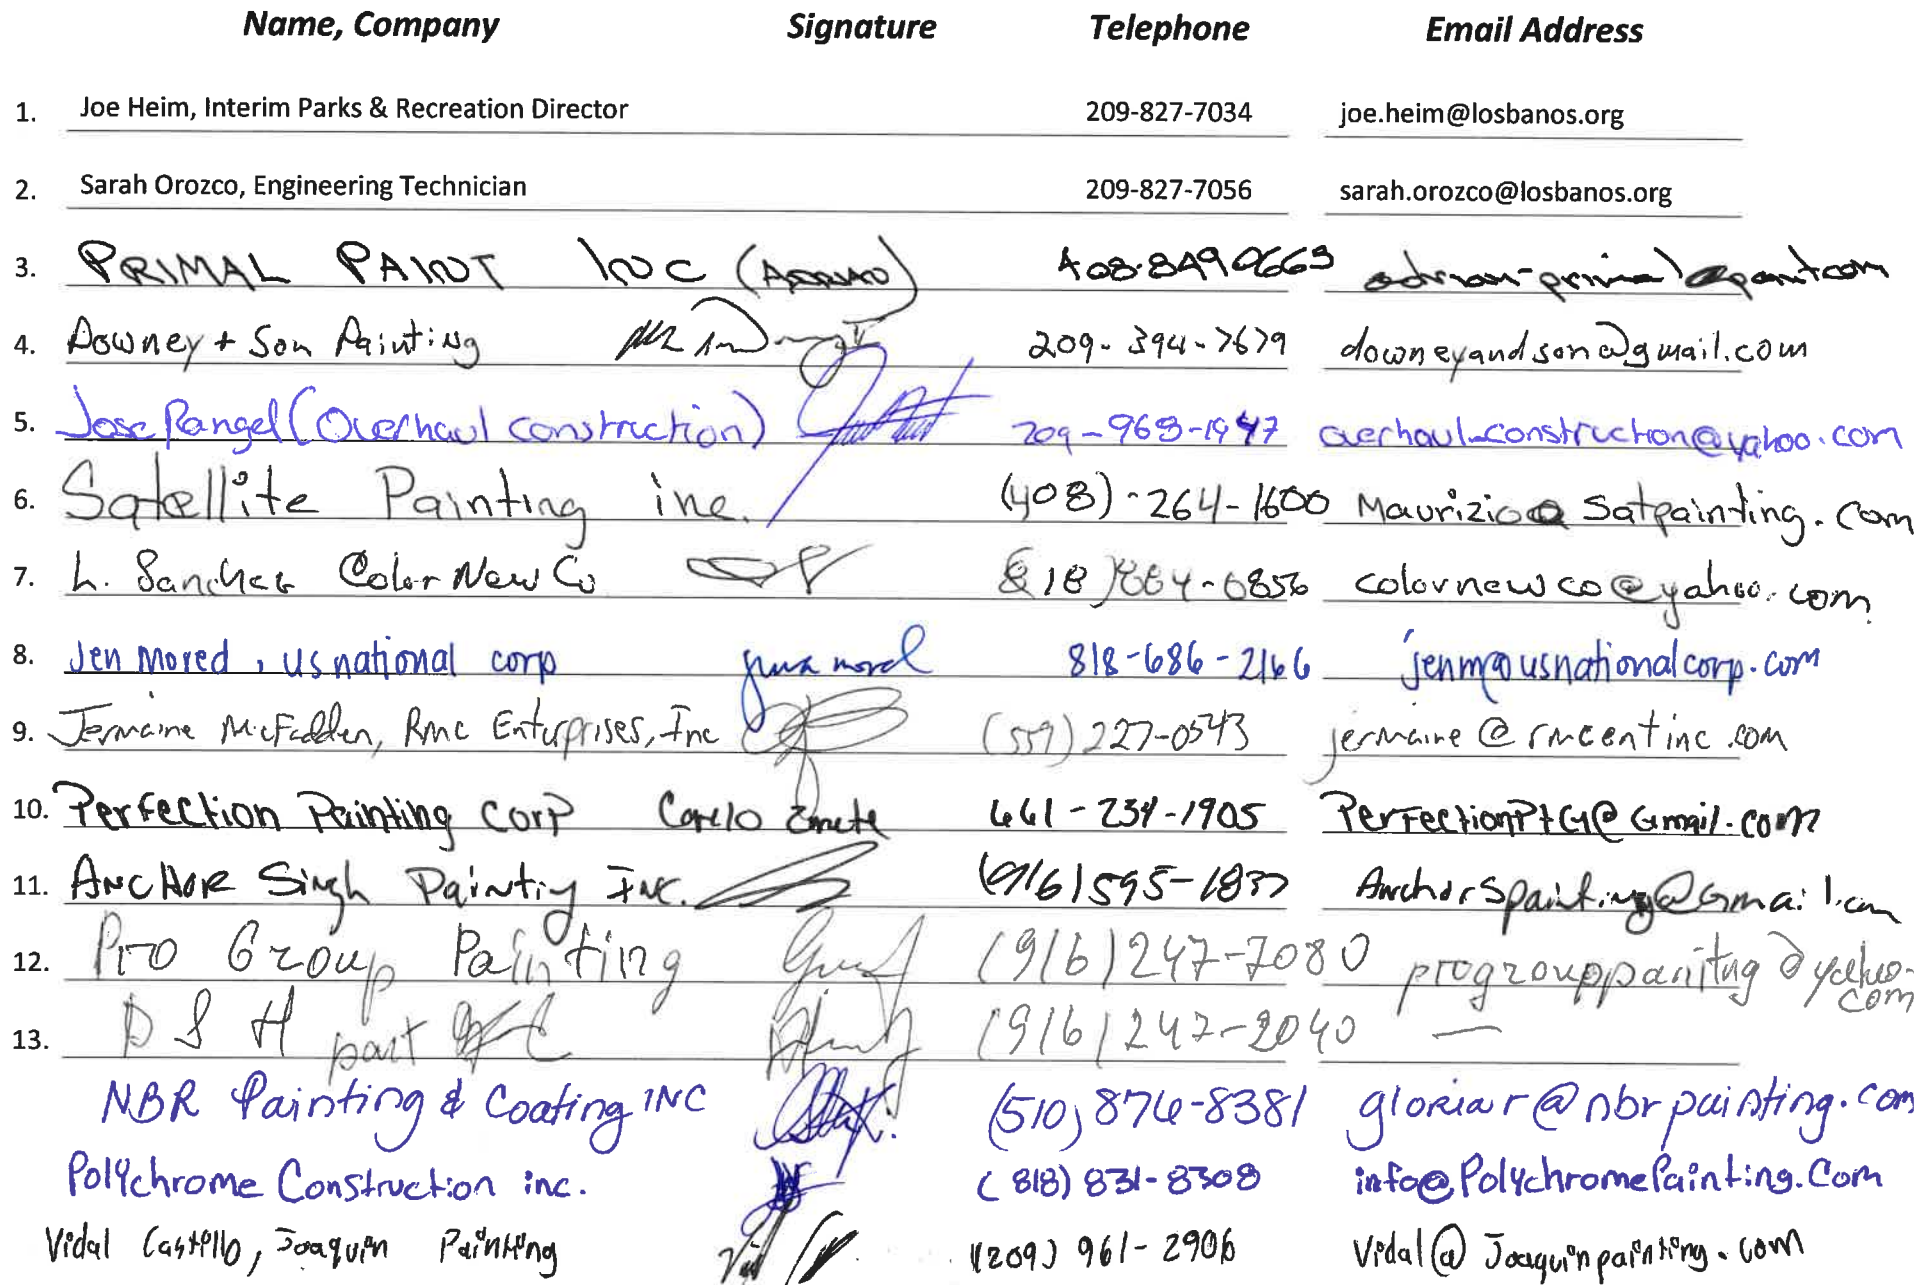 Name, Company Signature Telephone Email Address
1. Joe Heim, Interim Parks & Recreation Director 209-827-7034 joe.heim@losbanos.org
2. Sarah Orozco, Engineering Technician 209-827-7056 sarah.orozco@losbanos.org
3. PRIMAL PAINT INC (ADRIAN) 408-849 0663
4. Downey + Son Painting 209-394-7679 downeyandson@gmail.com
5. Jose Rangel (Overhaul construction) 209-968-1947 overhaul_construction@yahoo.com
6. Satellite Painting inc. (408)-264-1600 Maurizio@satpainting.com
7. L. Sanchez Color New Co 818)884-0856 colornewco@yahoo.com
8. Jen Mored, us national corp 818-686-2166 jenm@usnationalcorp.com
9. Jermaine McFadden, RMC Enterprises, Inc (559) 227-0543 jermaine@rmcentinc.com
10. Perfection Painting Corp 661-234-1905 PerfectionPtG@Gmail.com
11. ANCHOR Singh Painting INC. (916) 595-1837 AnchorSpainting@Gmail.com
12. Pro Group Painting (916)247-7080 progrouppanitng@yahoo.com
13. D S H (916)247-2040 —
NBR Painting & Coating INC (510) 876-8381 gloriar@nbrpainting.com
Polychrome Construction inc. (818) 831-8308 info@PolychromePainting.Com
Vidal Castillo, Joaquin Painting (209) 961-2906 Vidal@Joaquinpainting.com